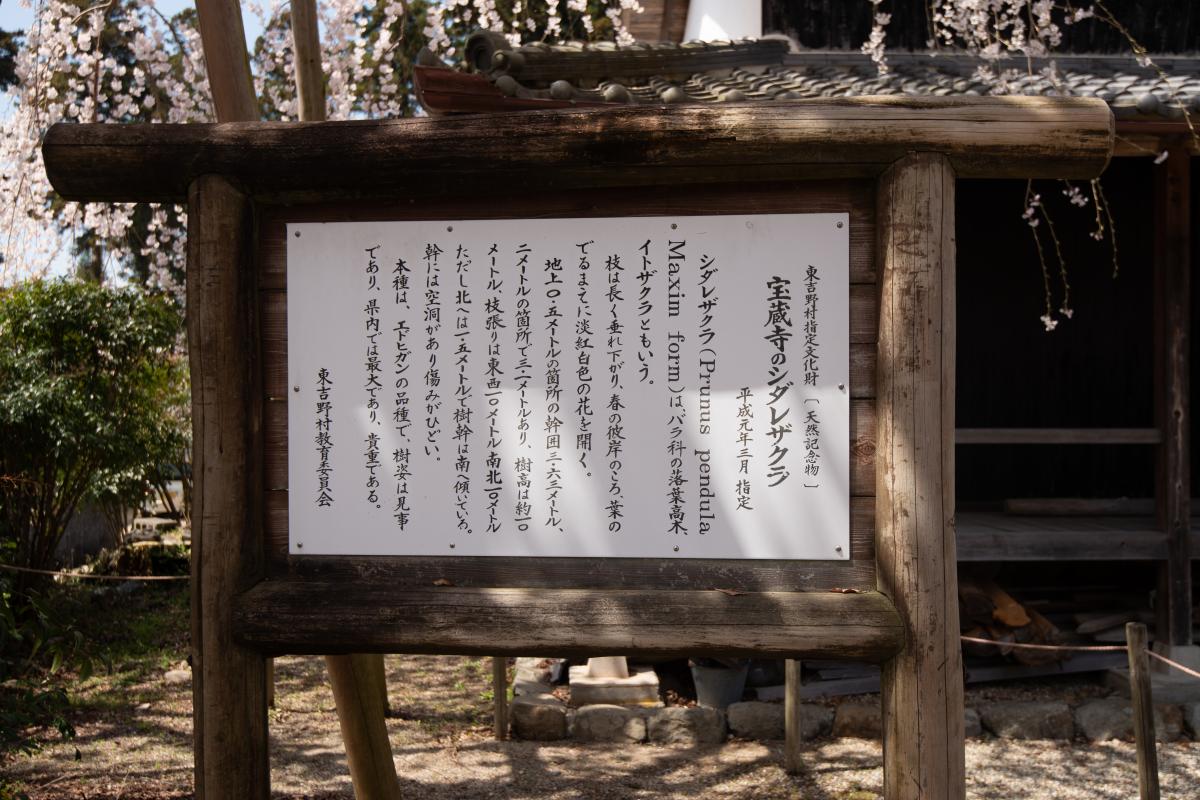 東吉野村指定文化財 〔天然記念物〕
宝蔵寺のシダレザクラ
平成元年三月 指定
シダレザクラ(Prunus pendula
Maxim form)は、バラ科の落葉高木、
イトザクラともいう。
枝は長く垂れ下がり、春の彼岸のころ、葉の
でるまてに淡紅白色の花を開く。
地上〇・五メートルの箇所の幹囲三・六三メートル、
二メートルの箇所で三・二メートルあり、樹高は約一〇
メートル、枝張りは東西一〇メートル南北一〇メートル
ただし北へは一・五メートルで樹幹は南へ傾いている。
幹には空洞があり傷みがひどい。
本種は、エドヒガンの品種で、樹姿は見事
であり、県内では最大であり、貴重である。
東吉野村教育委員会